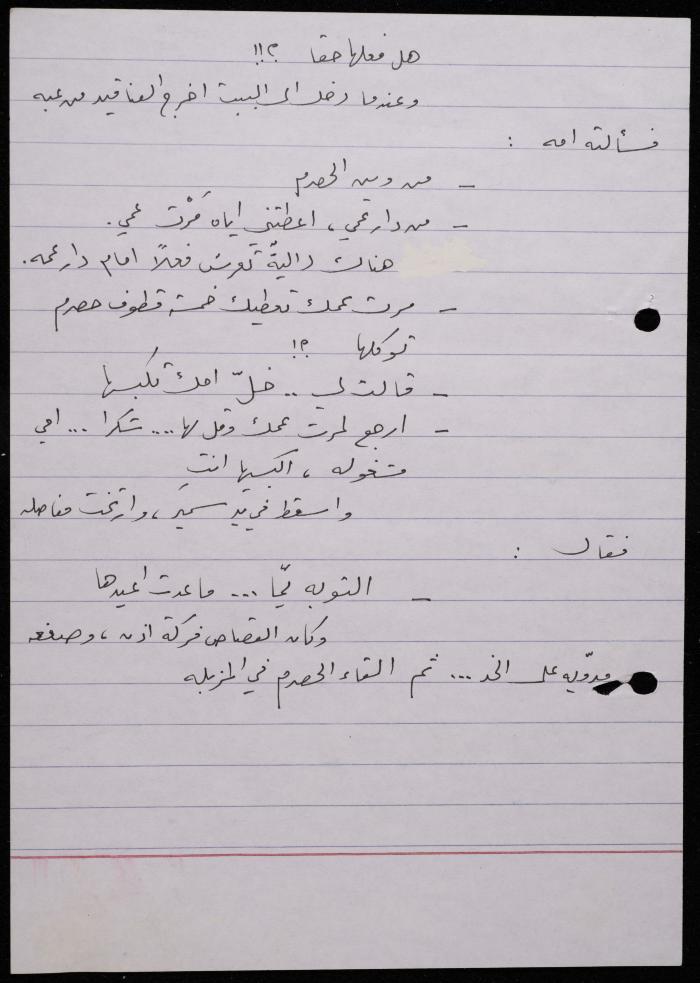 هل فعلها حقا ؟!!
وعندما دخل الى البيت اخرج العناقيد من عبه
فسألته امه :
– من وين الحصرم
– من دار عمي ، اعطتني اياه مَرْت عمي .
هناك داليةٌ تعرش فعلاً امام دار عمه .
– مرت عمك تعطيك خمسة قطوف حصرم
توكلها ؟!
– قالت لي .. خلّ امك تكبسها
– ارجع لمرت عمك وقل لها .... شكرا ... امي
مشغوله ، اكبسيها انتِ
واسقط في يد سمير ، وارتخت مفاصله
فقال :
– التوبه يمّا ... ما عدت اعيدها
وكان القصاص فركة اذن ، وصفعه
مدوّيه على الخد ... ثم القاء الحصرم في المزبله